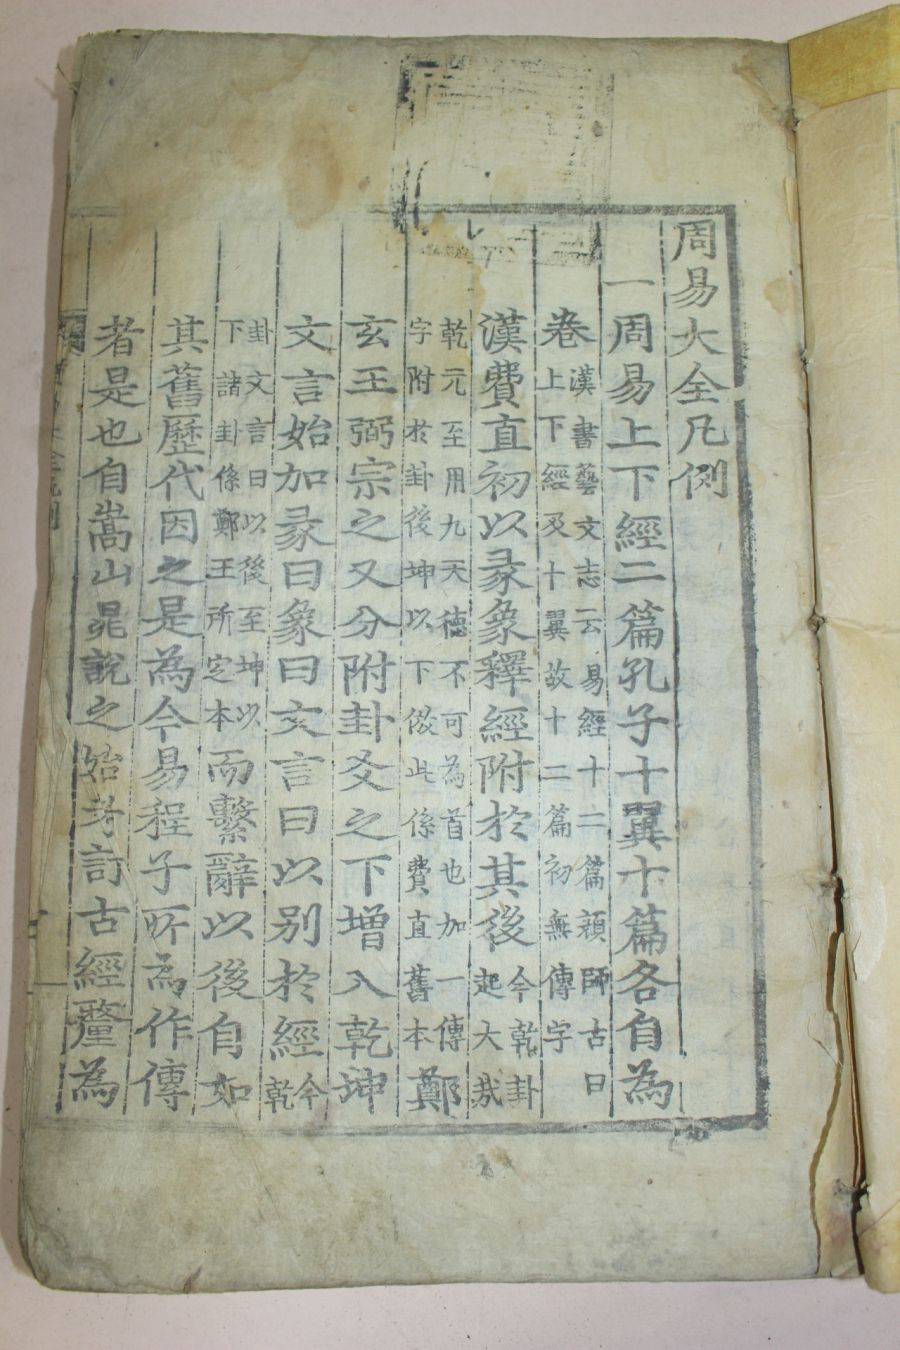 周易大全凡例
一周易上下經二篇孔子十翼十篇各自為
卷漢書藝文志云易經十二篇顔師古曰
上下經及十翼故十二篇初無傳字
漢費直初以彖象釋經附於其後今乾卦
起大哉
乾元至用九天德不可為首也加一傳
字附於卦後坤以下倣此係費直舊本鄭
玄王弼宗之又分附卦爻之下增入乾坤
文言始加彖曰象曰文言曰以别於經今
乾
卦文言曰以後至坤以
下諸卦係鄭王所定本而繫辭以後自如
其舊歷代因之是為今易程子所為作傳
者是也自嵩山晁說之始考訂古經釐為